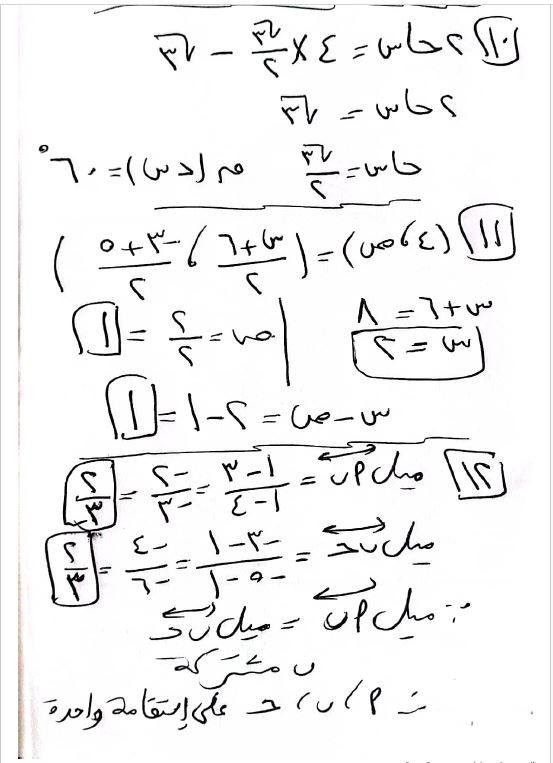 ١٠) ٢ حاس = ٤ × √٣/٢ − √٣
٢ حاس = √٣
حاس = √٣/٢ ق (د س) = ٦٠°
١١) (٤ ، ص) = (س + ٦/٢ ، −٣ + ٥/٢)
س + ٦ = ٨ | ص = ٢/٢ = ١
س = ٢
س − ص = ٢ − ١ = ١
١٢) ميل ↔أب = ١ − ٣/١ − ٤ = −٢/−٣ = ٢/٣
ميل ↔ب ح = −٣ − ١/−٥ − ١ = −٤/−٦ = ٢/٣
∵ ميل ↔أب = ميل ↔ب ح
ب مشتركة
∴ أ ، ب ، ح على إستقامة واحدة